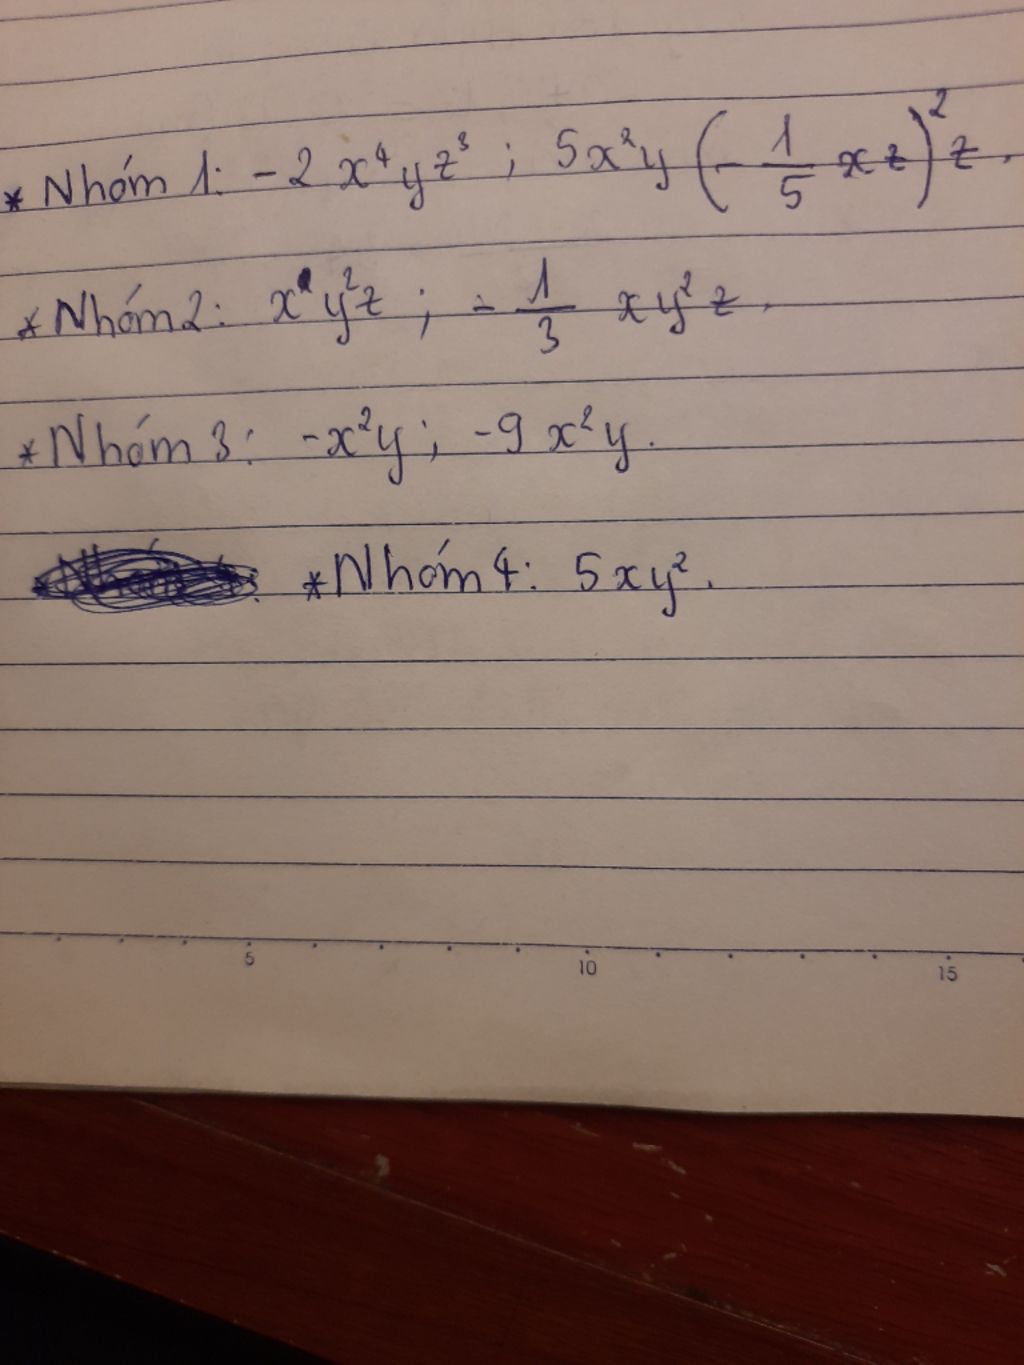 * Nhóm 1: -2x⁴yz³ ; 5x²y(-1/5 xz)²z.
* Nhóm 2: x y²z ; -1/3 xy²z.
* Nhóm 3: -x²y ; -9x²y.
* Nhóm 4: 5xy².
5 10 15